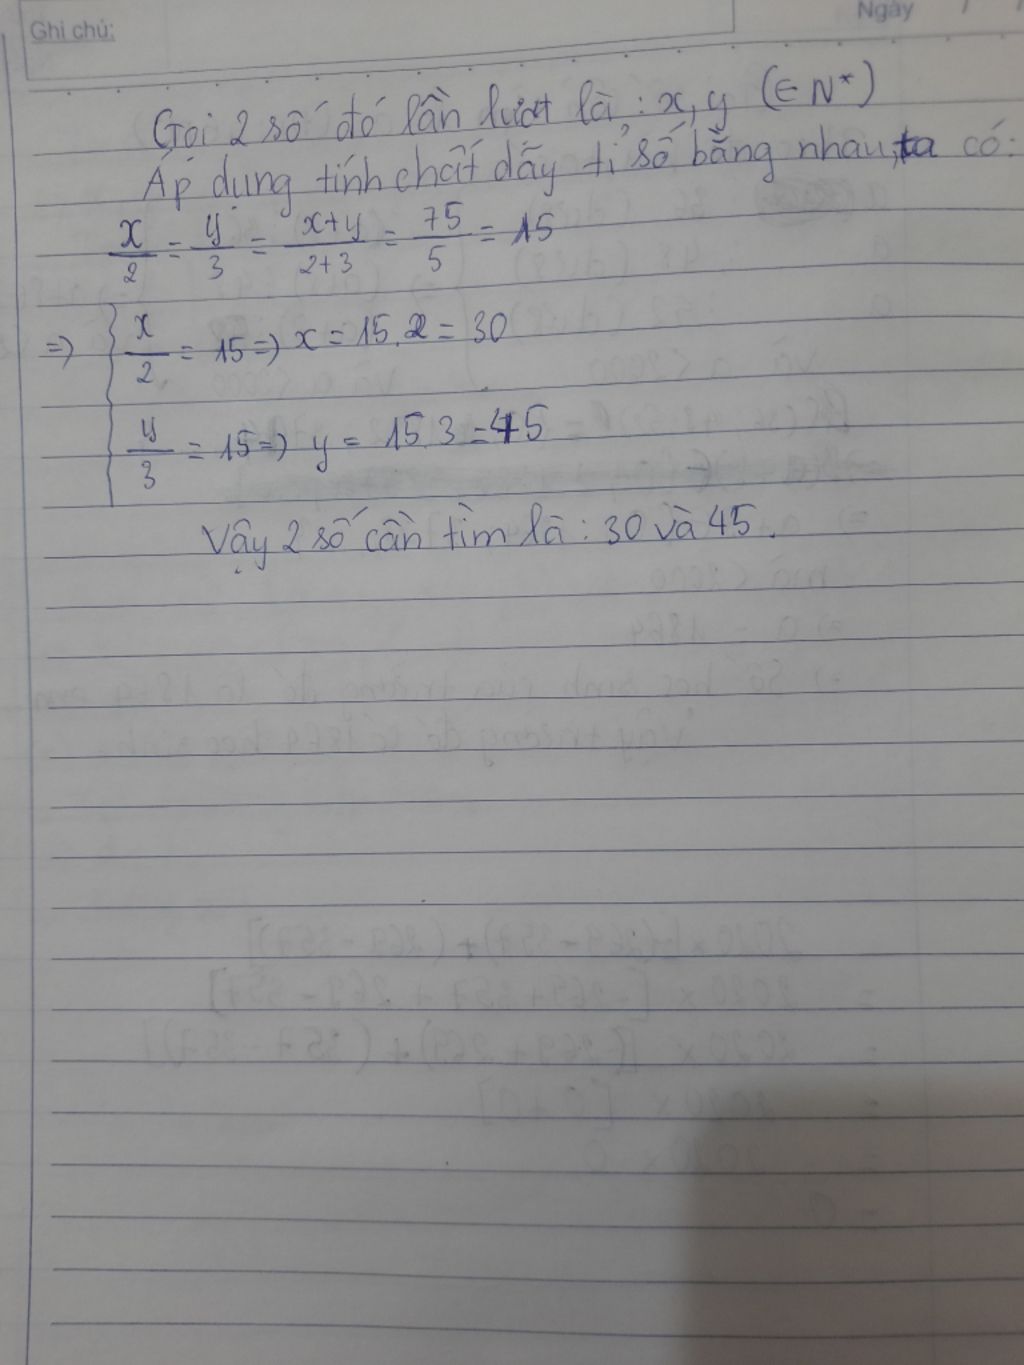 Ghi chú:
Ngày / /
Gọi 2 số đó lần lượt là : x, y (∈ N*)
Áp dụng tính chất dãy tỉ số bằng nhau, ta có:
x/2 = y/3 = x+y/2+3 = 75/5 = 15
=> { x/2 = 15 => x = 15.2 = 30
y/3 = 15 => y = 15.3 = 45
Vậy 2 số cần tìm là : 30 và 45.